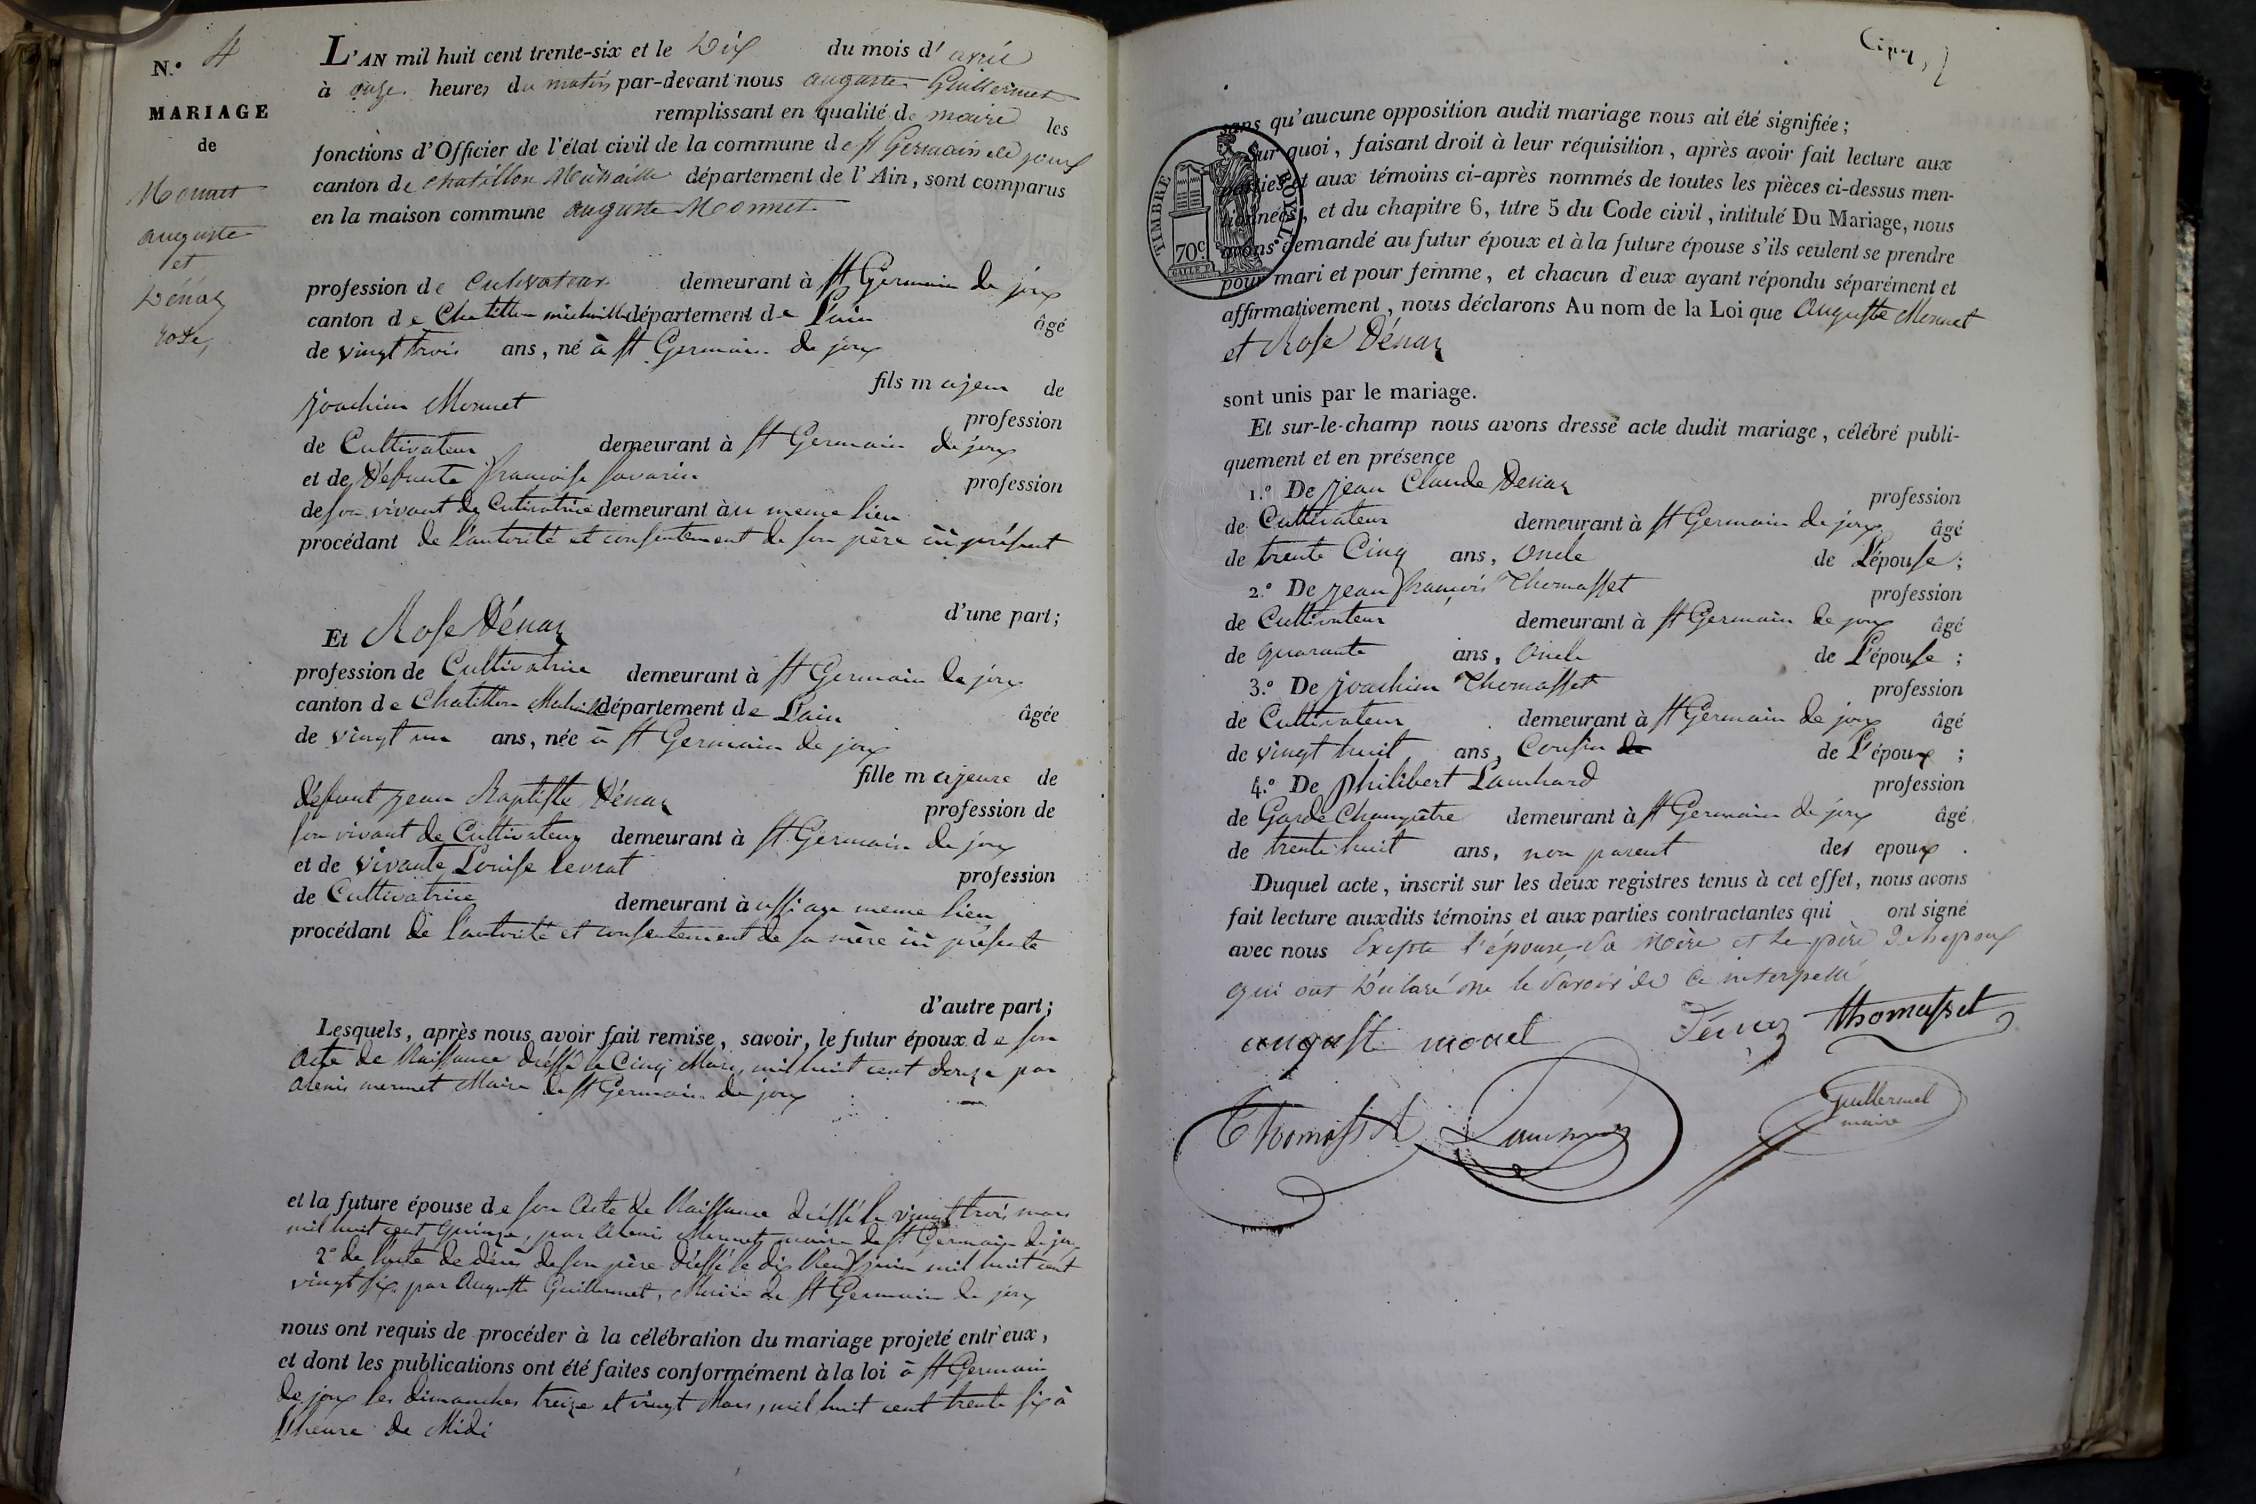 N.º 4
MARIAGE
de
Monnet
auguste
et
Dénaz
rose,
L'AN mil huit cent trente-six et le Dix du mois d'avril
à onze heures du matin par-devant nous auguste Guillermet
remplissant en qualité de maire les
fonctions d'Officier de l'état civil de la commune de St Germain de joux
canton de chatillon Michaille département de l'Ain, sont comparus
en la maison commune auguste Monnet
profession de Cultivateur demeurant à St Germain de joux
canton de Chatillon michaille département de L'ain âgé
de vingt trois ans, né à St Germain de joux
fils majeur de
joachim Monnet profession
de Cultivateur demeurant à St Germain de joux
et de Défunte françoise Savarin profession
de son vivant de Cultivatrice demeurant àu meme lieu
procédant de l'autorité et consentement de son père ici présent
d'une part;
Et Rose Dénaz
profession de Cultivatrice demeurant à St Germain de joux
canton de Chatillon Michaille département de L'ain âgée
de vingt un ans, née à St Germain de joux
fille majeure de
défunt jean Baptiste Dénaz profession de
son vivant de Cultivateur demeurant à St Germain de joux
et de vivante Louise Levrat profession
de Cultivatrice demeurant àussi au meme lieu
procédant de l'autorité et consentement de sa mère ici présente
d'autre part;
Lesquels, après nous avoir fait remise, savoir, le futur époux de son
Acte de Naissance dressé le Cinq Mars mil huit cent douze par
mermet Maire de St Germain de joux
et la future épouse de son Acte de Naissance dressé le vingt trois mars
mil huit cent quinze, par Mermet maire de St Germain de joux
2º de l'acte de décès de son père dressé le dix neuf juin mil huit cent
vingt six par Auguste Guillermet, Maire de St Germain de joux
nous ont requis de procéder à la célébration du mariage projeté entr'eux,
et dont les publications ont été faites conformément à la loi à St Germain
de joux les dimanches treize et vingt Mars, mil huit cent trente six à
l'heure de Midi
Cinq
sans qu'aucune opposition audit mariage nous ait été signifiée;
Sur quoi, faisant droit à leur réquisition, après avoir fait lecture aux
parties et aux témoins ci-après nommés de toutes les pièces ci-dessus men-
tionnées, et du chapitre 6, titre 5 du Code civil, intitulé Du Mariage, nous
avons demandé au futur époux et à la future épouse s'ils veulent se prendre
pour mari et pour femme, et chacun d'eux ayant répondu séparément et
affirmativement, nous déclarons Au nom de la Loi que Auguste Monnet
et Rose Dénaz
TIMBRE ROYAL.
70c.
sont unis par le mariage.
Et sur-le-champ nous avons dressé acte dudit mariage, célébré publi-
quement et en présence
1.º De jean Claude Denaz profession
de Cultivateur demeurant à St Germain de joux âgé
de trente Cinq ans, oncle de L'épouse;
2.º De jean françois Thomasset profession
de Cultivateur demeurant à St Germain de joux âgé
de quarante ans, oncle de L'épouse;
3.º De joachim Thomasset profession
de Cultivateur demeurant à St Germain de joux âgé
de vingt huit ans, Cousin de de L'époux;
4.º De philibert Lanchard profession
de Garde Champêtre demeurant à St Germain de joux âgé
de trente huit ans, non parent des epoux.
Duquel acte, inscrit sur les deux registres tenus à cet effet, nous avons
fait lecture auxdits témoins et aux parties contractantes qui ont signé
avec nous Excepté l'épouse, Sa Mère et Le père de l'epoux
qui ont Déclaré ne le Savoir de Ce interpellé
august monet Dénaz Thomasset
Thomasset
Guillermet
maire